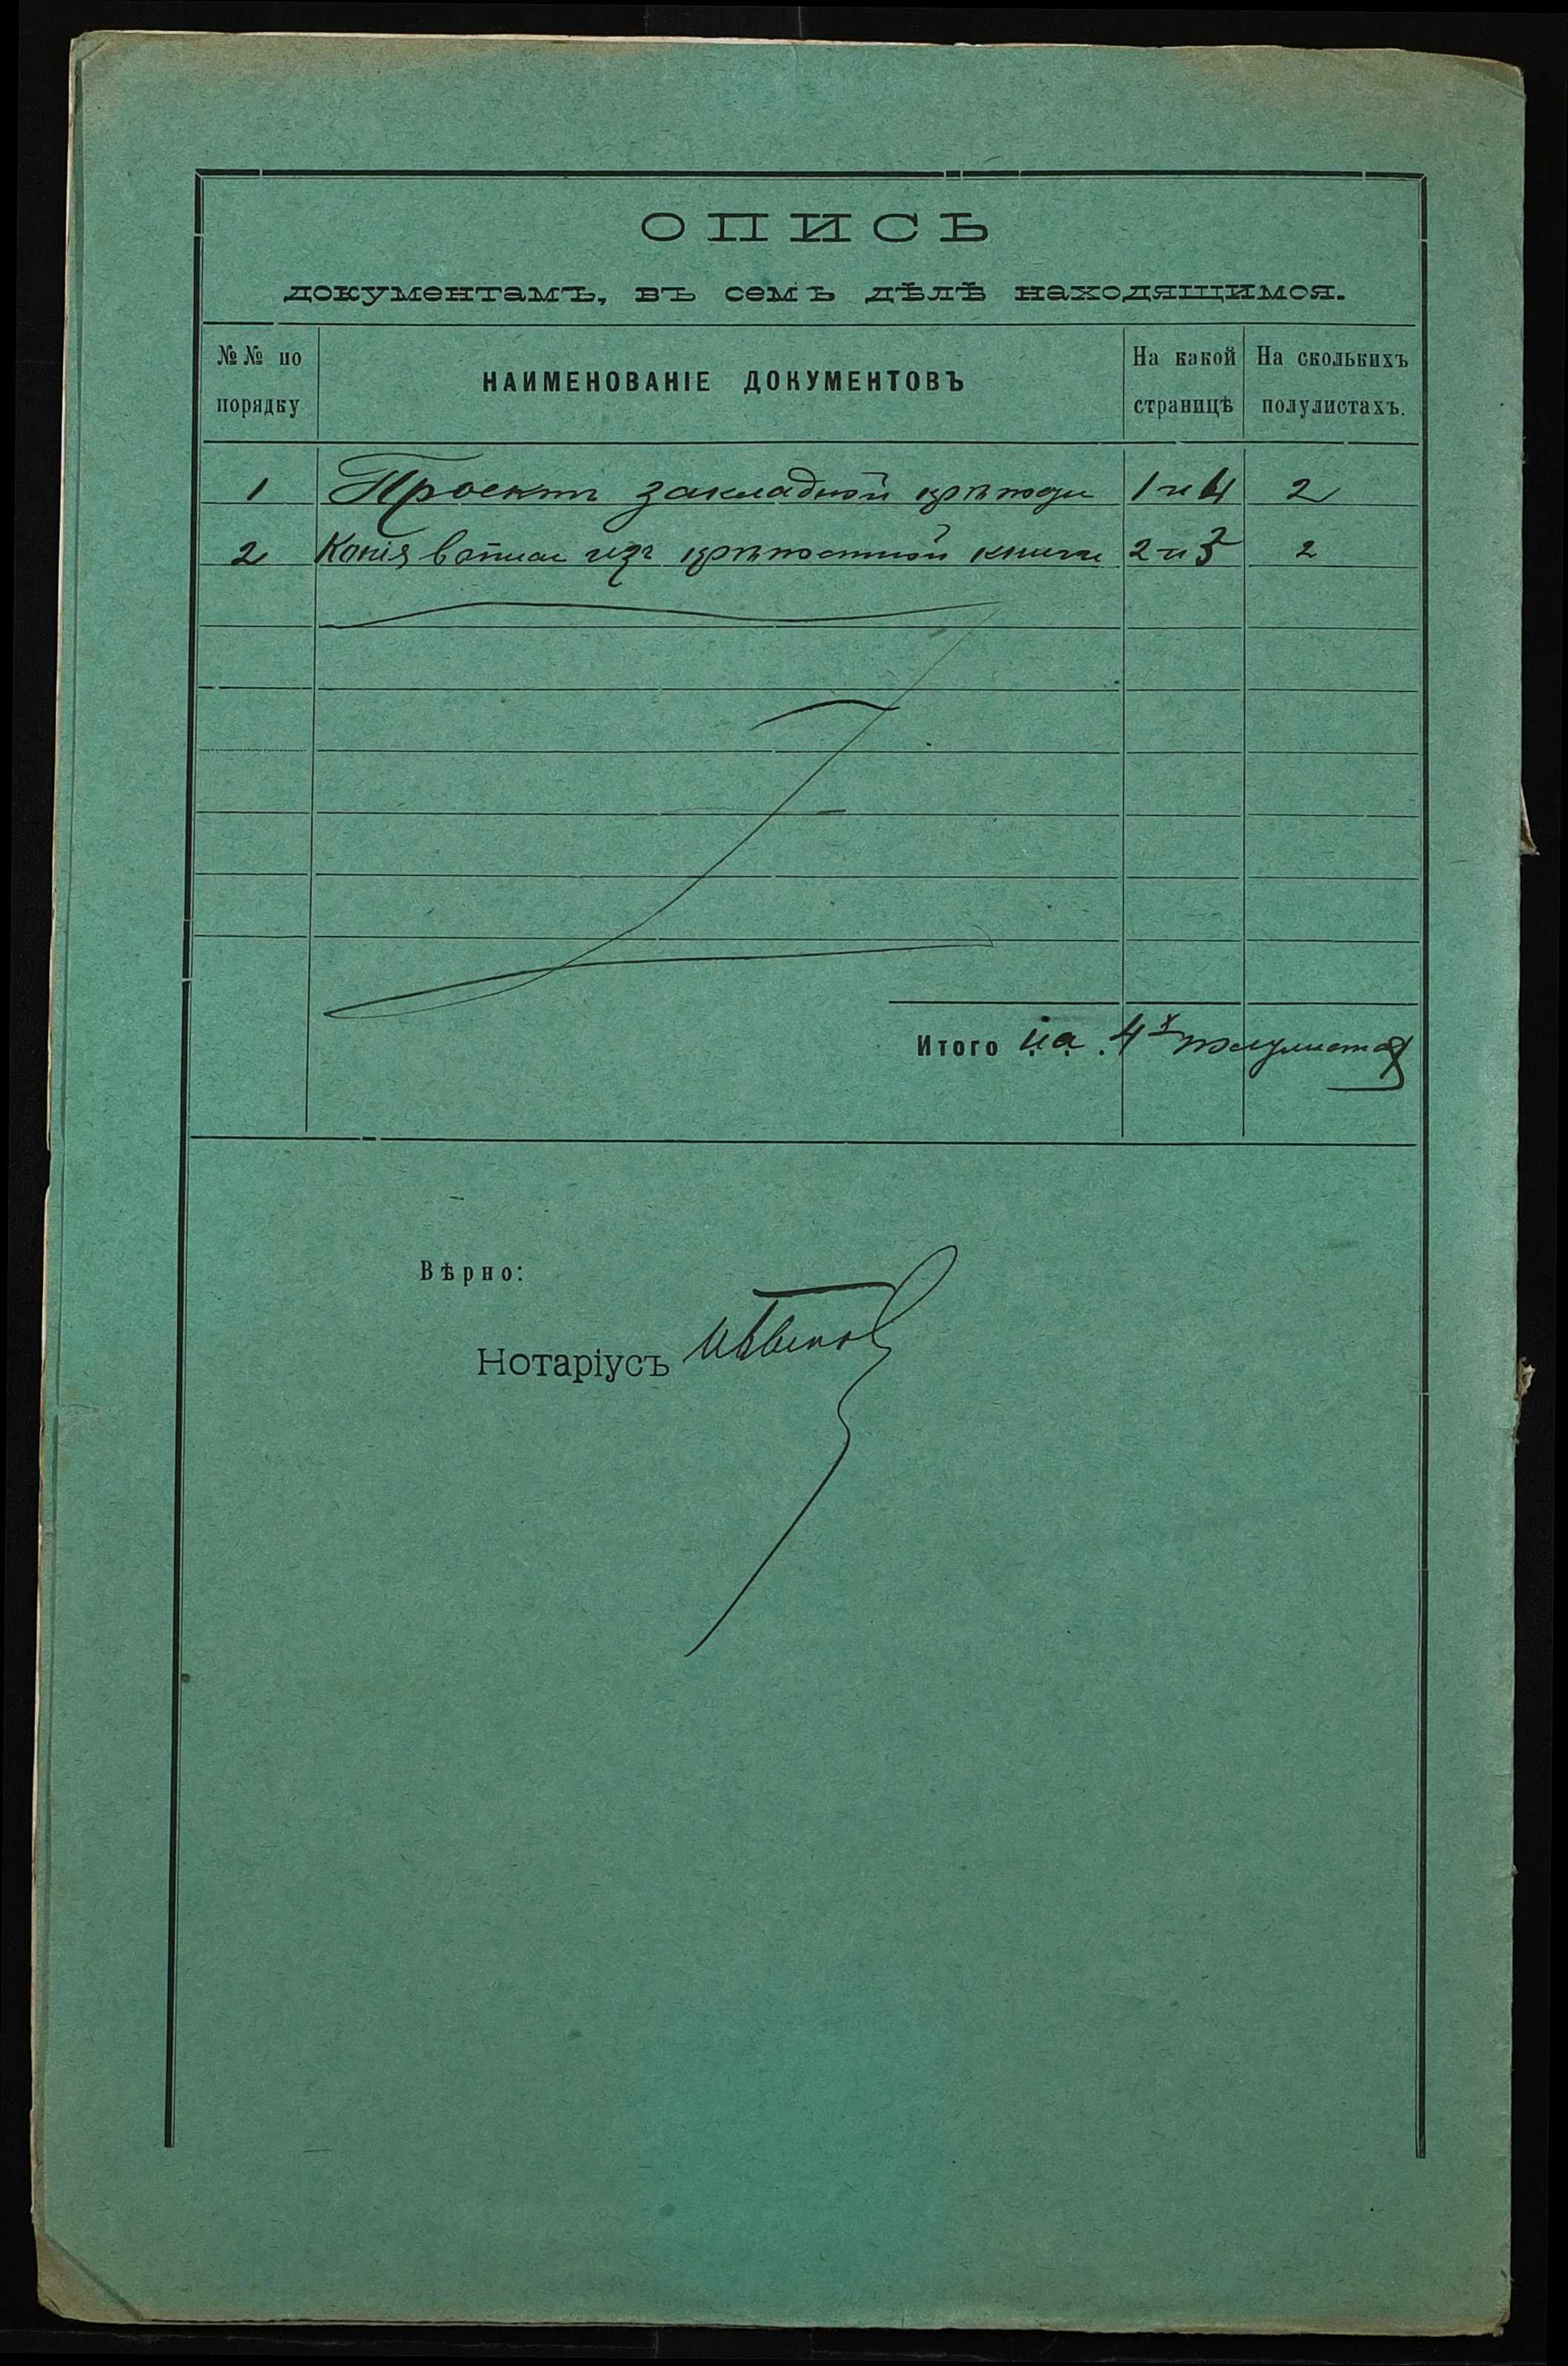 ОПИСЬ
документамъ, въ семъ дѣлѣ находящимся.
№№ по порядку
НАИМЕНОВАНІЕ ДОКУМЕНТОВЪ
На какой страницѣ
На сколькихъ полулистахъ.
1 Проектъ закладной крѣпости 1 и 4 2
2 Копія изъ крѣпостной книги 2 и 3 2
Итого на 4х полулистах
Вѣрно:
Нотаріусъ